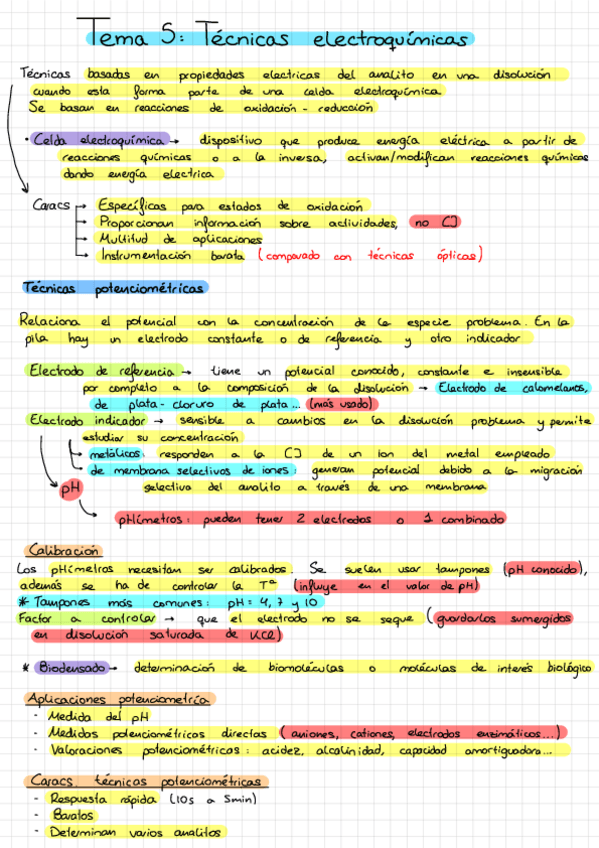 Tema 5: Técnicas electroquímicas
Técnicas basadas en propiedades electricas del analito en una disolución
cuando esta forma parte de una celda electroquímica.
Se basan en reacciones de oxidación - reducción
· Celda electroquímica → dispositivo que produce energía eléctrica a partir de
reacciones químicas o a la inversa, activan/modifican reacciones químicas
dando energía electrica
Caracs → Específicas para estados de oxidación
→ Proporcionan información sobre actividades, no []
→ Multitud de aplicaciones
→ Instrumentación barata (comparado con técnicas ópticas)
Técnicas potenciométricas
Relaciona el potencial con la concentración de la especie problema. En la
pila hay un electrodo constante o de referencia y otro indicador
Electrodo de referencia → tiene un potencial conocido, constante e insensible
por completo a la composición de la disolución → Electrodo de calomelanos,
de plata - cloruro de plata... (más usado)
Electrodo indicador → sensible a cambios en la disolución problema y permite
estudiar su concentración
→ metálicos: responden a la [] de un ion del metal empleado
→ de membrana selectivos de iones: generan potencial debido a la migración
pH selectiva del analito a través de una membrana
pHímetros: pueden tener 2 electrodos o 1 combinado
Calibración
Los pHímetros necesitan ser calibrados. Se suelen usar tampones (pH conocido),
además se ha de controlar la Tª (influye en el valor de pH)
* Tampones más comunes: pH = 4, 7 y 10
Factor a controlar → que el electrodo no se seque (guardarlos sumergidos
en disolución saturada de KCl)
* Biodensado → determinación de biomoléculas o moléculas de interés biológico
Aplicaciones potenciometría
- Medida del pH
- Medidos potenciométricos directas (aniones, cationes, electrodos enzimáticos...)
- Valoraciones potenciométricas: acidez, alcalinidad, capacidad amortiguadora...
Caracs. técnicas potenciométricas
- Respuesta rápida (10s a 5min)
- Baratos
- Determinan varios analitos